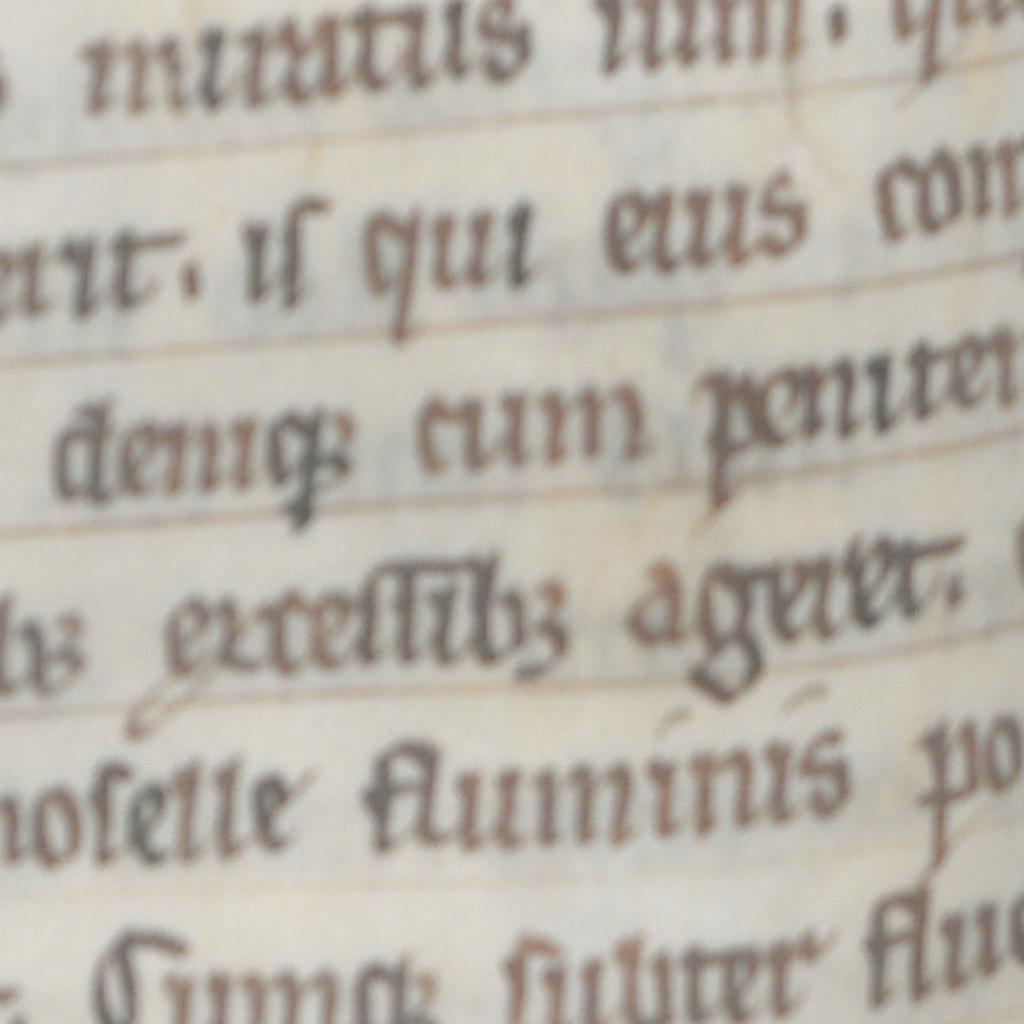 miratus sum. qu
erit. is qui eius com
deniq; cum penitet
b; excessib; ageret.
moselle fluminis po
Cumq; subter fluu